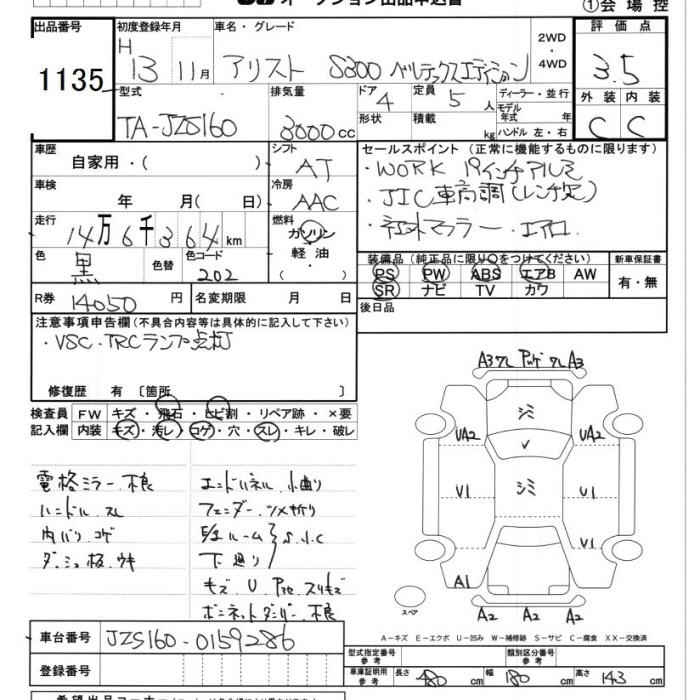 オークション出品申込書
①会場控
出品番号
1135
初度登録年月
H 13 11月
車名・グレード
アリスト S300 ベルテックスエディション
2WD
・
4WD
評価点
3.5
型式
TA-JZS160
排気量
3000cc
ドア 4
定員 5人
ディーラー・並行
モデル年式 年
形状
積載 kg
ハンドル 左・右
外装 内装
C C
車歴
自家用・( )
シフト
AT
セールスポイント (正常に機能するものに限ります)
・WORK 19インチアルミ
・JIC車高調(レンチ欠)
・社外マフラー・エアロ
車検
年 月( 日)
冷房
AAC
走行
14万6千364km
燃料
ガソリン
軽油
・( )
色
黒
色替
色コード
202
装備品 (純正品に限り○をつけてください)
PS PW ABS エアB AW
SR ナビ TV カワ
新車保証書
有・無
R券 14050円
名変期限 月 日
後日品
注意事項申告欄(不具合内容等は具体的に記入して下さい)
・VSC・TRCランプ点灯
修復歴 有 〔箇所 〕
検査員記入欄
FW キズ・飛石・ヒビ割・リペア跡・×要
内装 キズ・汚レ・コゲ・穴・スレ・キレ・破レ
電格ミラー不良
ハンドル スレ
内バリ コゲ
ダッシュ板 ウキ
エンドパネル 小曲り
フェンダー ツメ折り
E/ルーム
下廻り
S.小C
キズ U P交 スリキズ
ボンネットダンパー不良
A3ワレ ワレA3
シミ
UA2 UA2
シミ
U1 U1
U1
A1
スペア
A2 A2 A2
A-キズ E-エクボ U-凹み W-補修跡 S-サビ C-腐食 XX-交換済
車台番号 JZS160-0159286
登録番号
型式指定番号 参考
類別区分番号 参考
車庫証明用 参考 長さ 480cm 幅 180cm 高さ 143cm